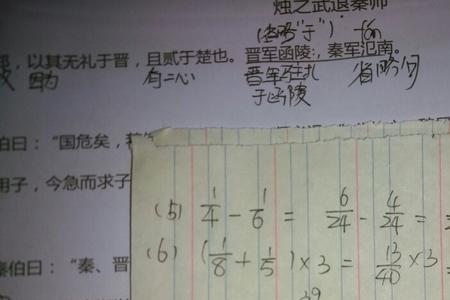 烛之武退秦师
(省略"于")
，以其无礼于晋，且贰于楚也。晋军函陵，秦军氾南。
因为 有二心 晋军驻扎 省略句
于函陵
伯曰：“国危矣，
用子，今急而求子
秦伯曰：“秦、晋
(5) 1/4 - 1/6 = 6/24 - 4/24 =
(6) (1/8 + 1/5) × 3 = 13/40 × 3
39